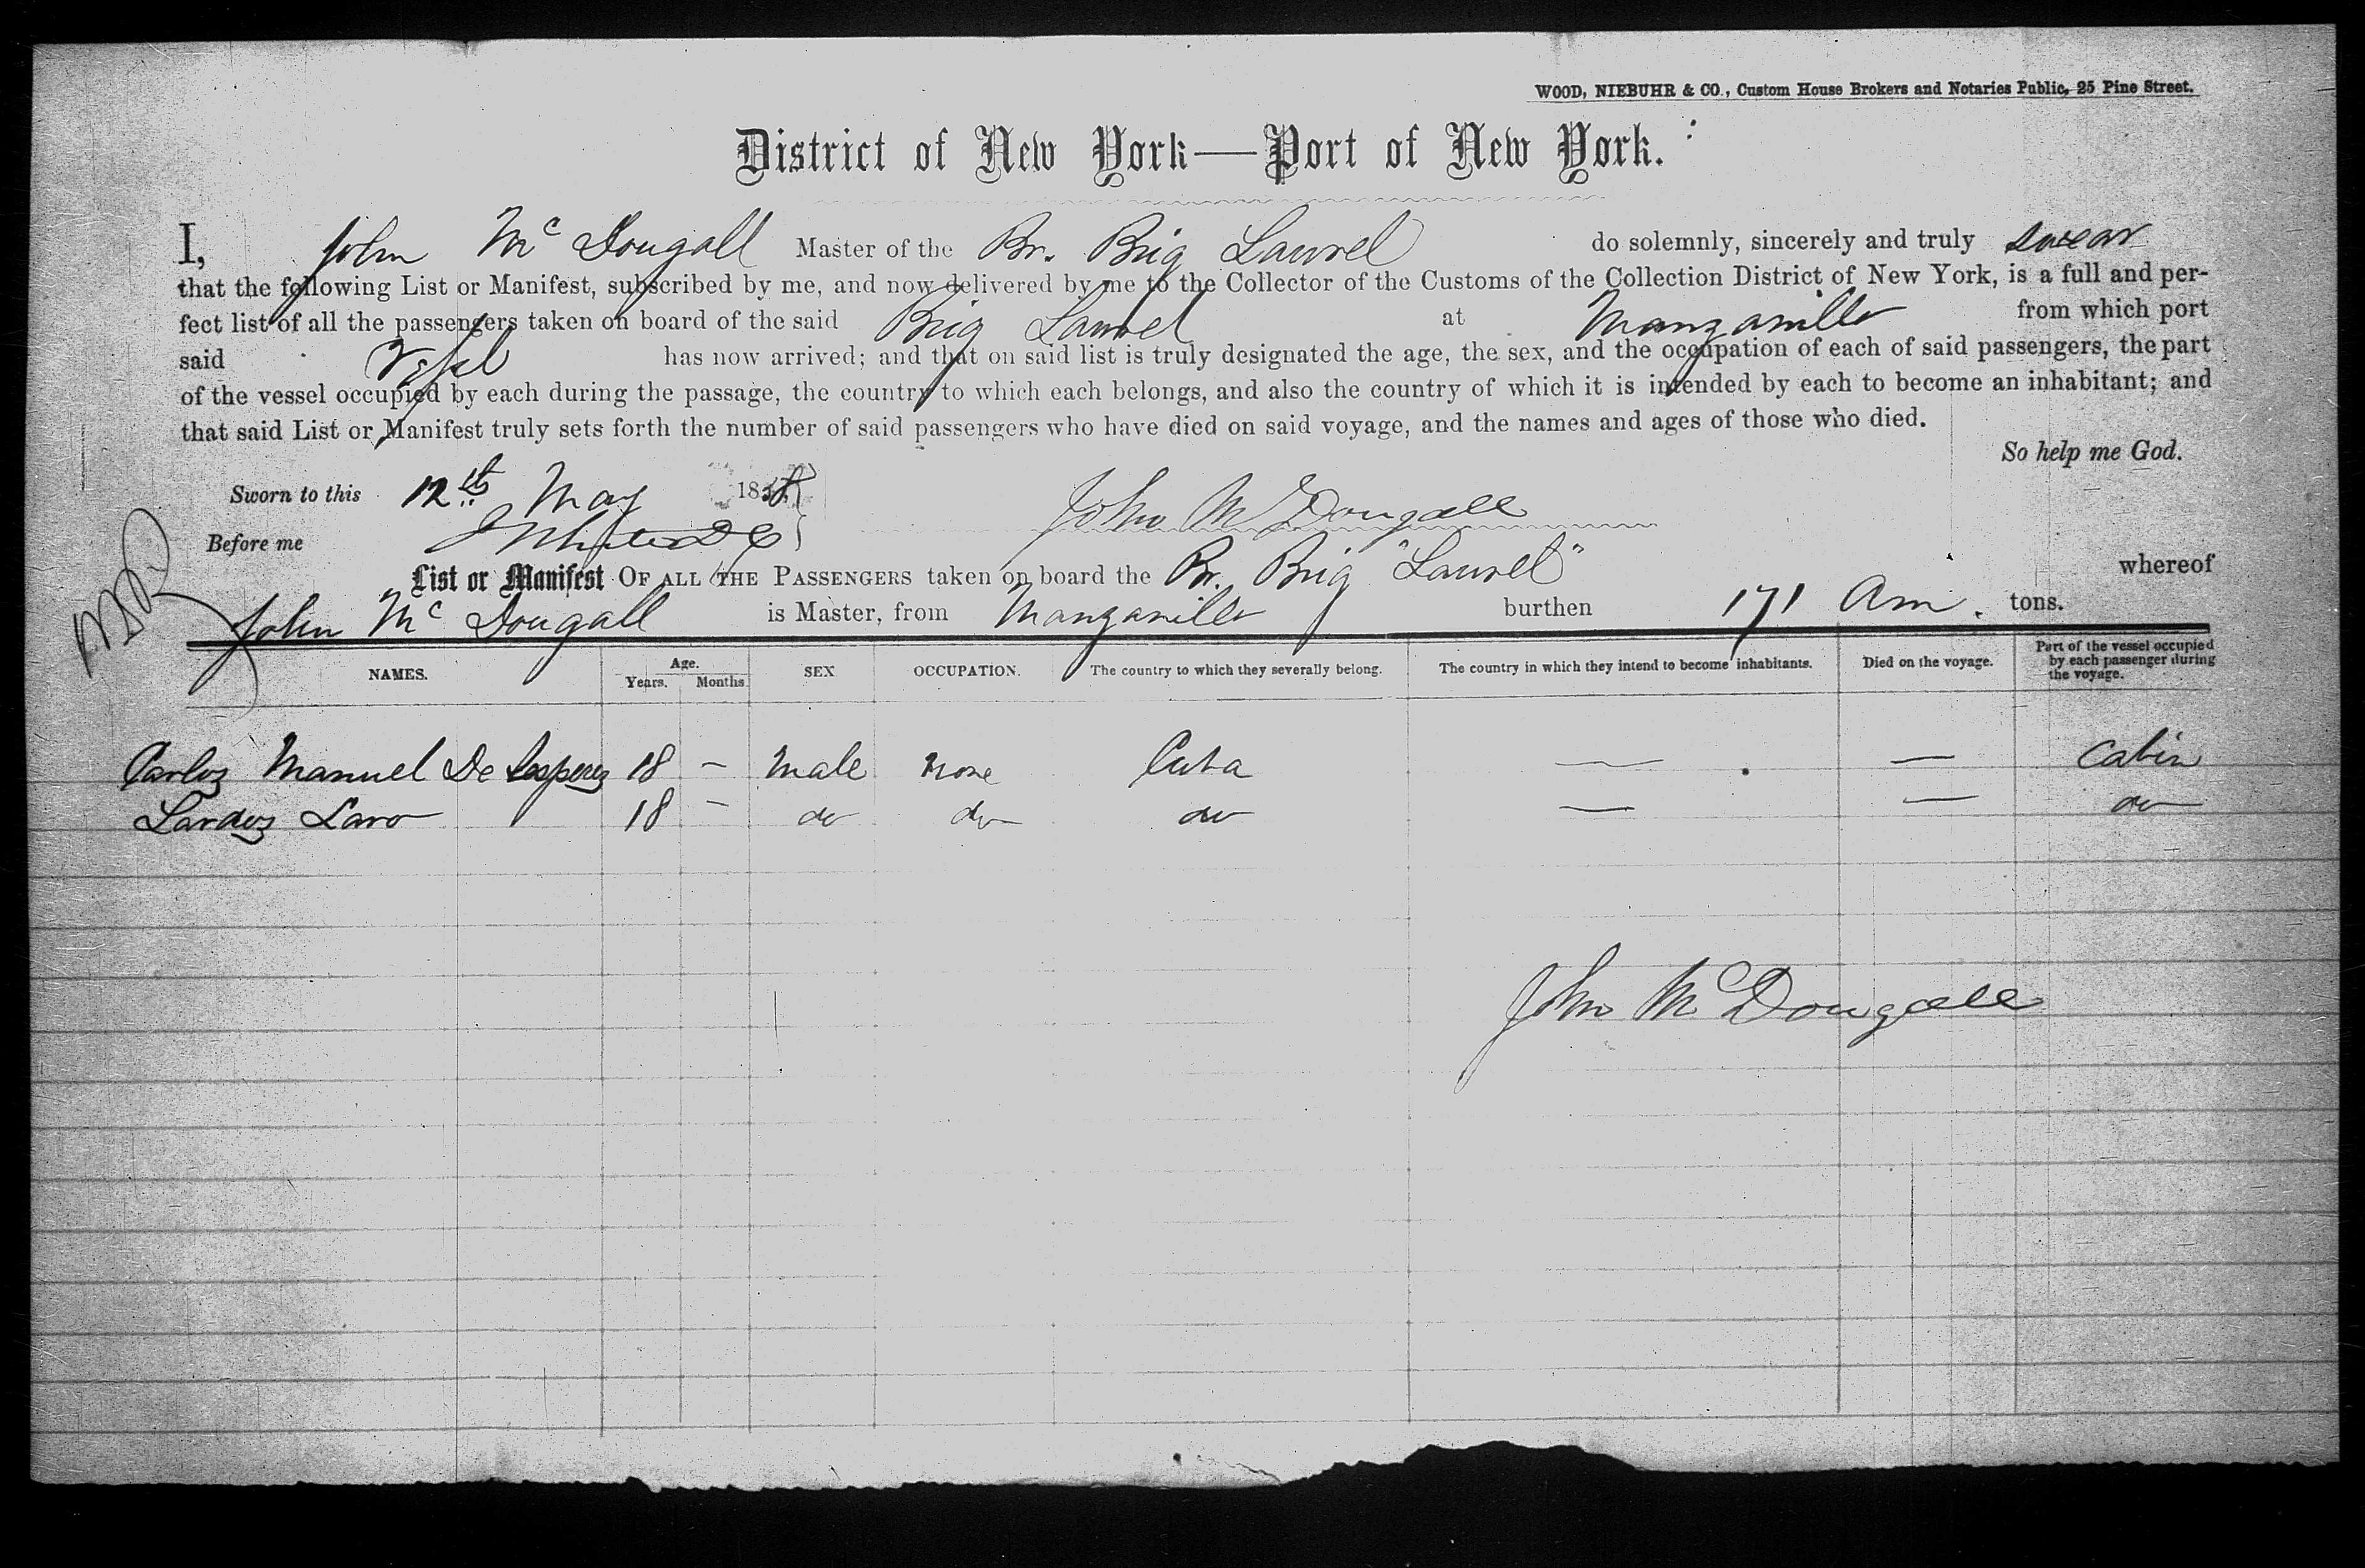 WOOD, NIEBUHR & CO., Custom House Brokers and Notaries Public, 25 Pine Street.
District of New York—Port of New York.
I, John Mc Dougall Master of the Br. Brig Laurel do solemnly, sincerely and truly swear
that the following List or Manifest, subscribed by me, and now delivered by me to the Collector of the Customs of the Collection District of New York, is a full and per-
fect list of all the passengers taken on board of the said Brig Laurel at Manzanillo from which port
said Vessel has now arrived; and that on said list is truly designated the age, the sex, and the occupation of each of said passengers, the part
of the vessel occupied by each during the passage, the country to which each belongs, and also the country of which it is intended by each to become an inhabitant; and
that said List or Manifest truly sets forth the number of said passengers who have died on said voyage, and the names and ages of those who died.
So help me God.
Sworn to this 12th May 1858
John McDougall
Before me
List or Manifest OF ALL THE PASSENGERS taken on board the Br. Brig "Laurel" whereof
John Mc Dougall is Master, from Manzanillo burthen 171 Am. tons.
NAMES. Age. Years. Months SEX OCCUPATION. The country to which they severally belong. The country in which they intend to become inhabitants. Died on the voyage. Part of the vessel occupied by each passenger during the voyage.
Carlos Manuel De 18 — Male None Cuba — — Cabin
Laro 18 — do do do — — do
John McDougall